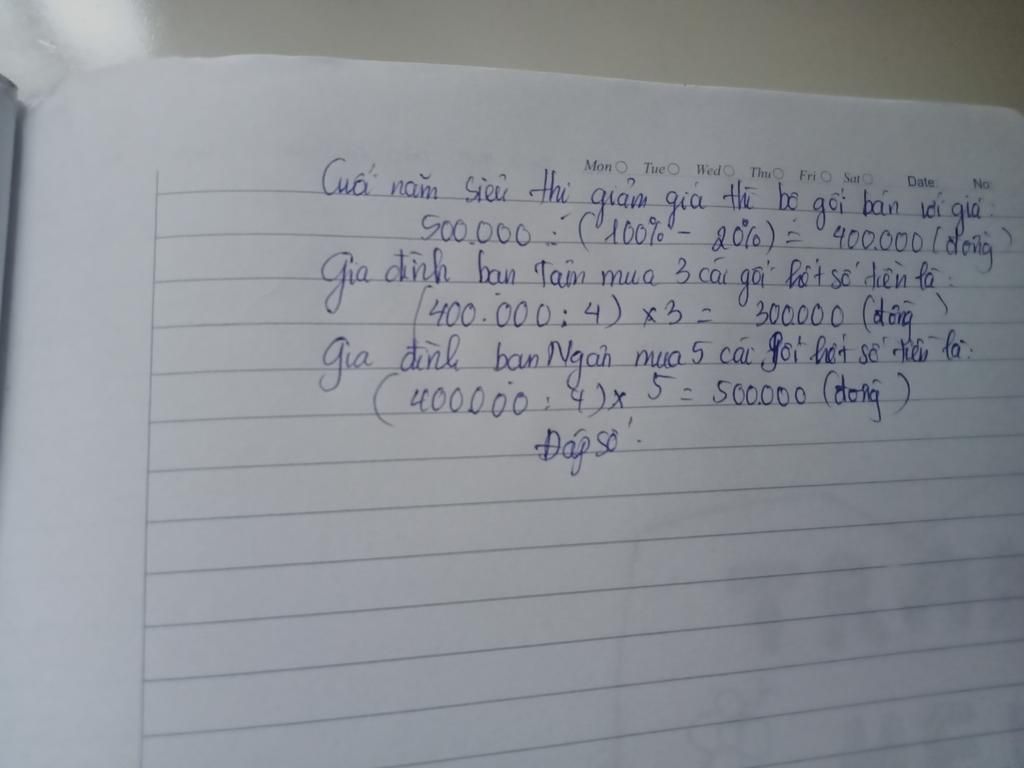 Mon Tue Wed Thu Fri Sat Date No
Cuối năm siêu thị giảm giá thì bộ gối bán với giá:
500.000 : (100% - 20%) = 400.000 (đồng)
Gia đình bạn Tâm mua 3 cái gối hết số tiền là:
(400.000 : 4) x 3 = 300.000 (đồng)
Gia đình bạn Ngân mua 5 cái gối hết số tiền là:
(400.000 : 4) x 5 = 500.000 (đồng)
Đáp số: